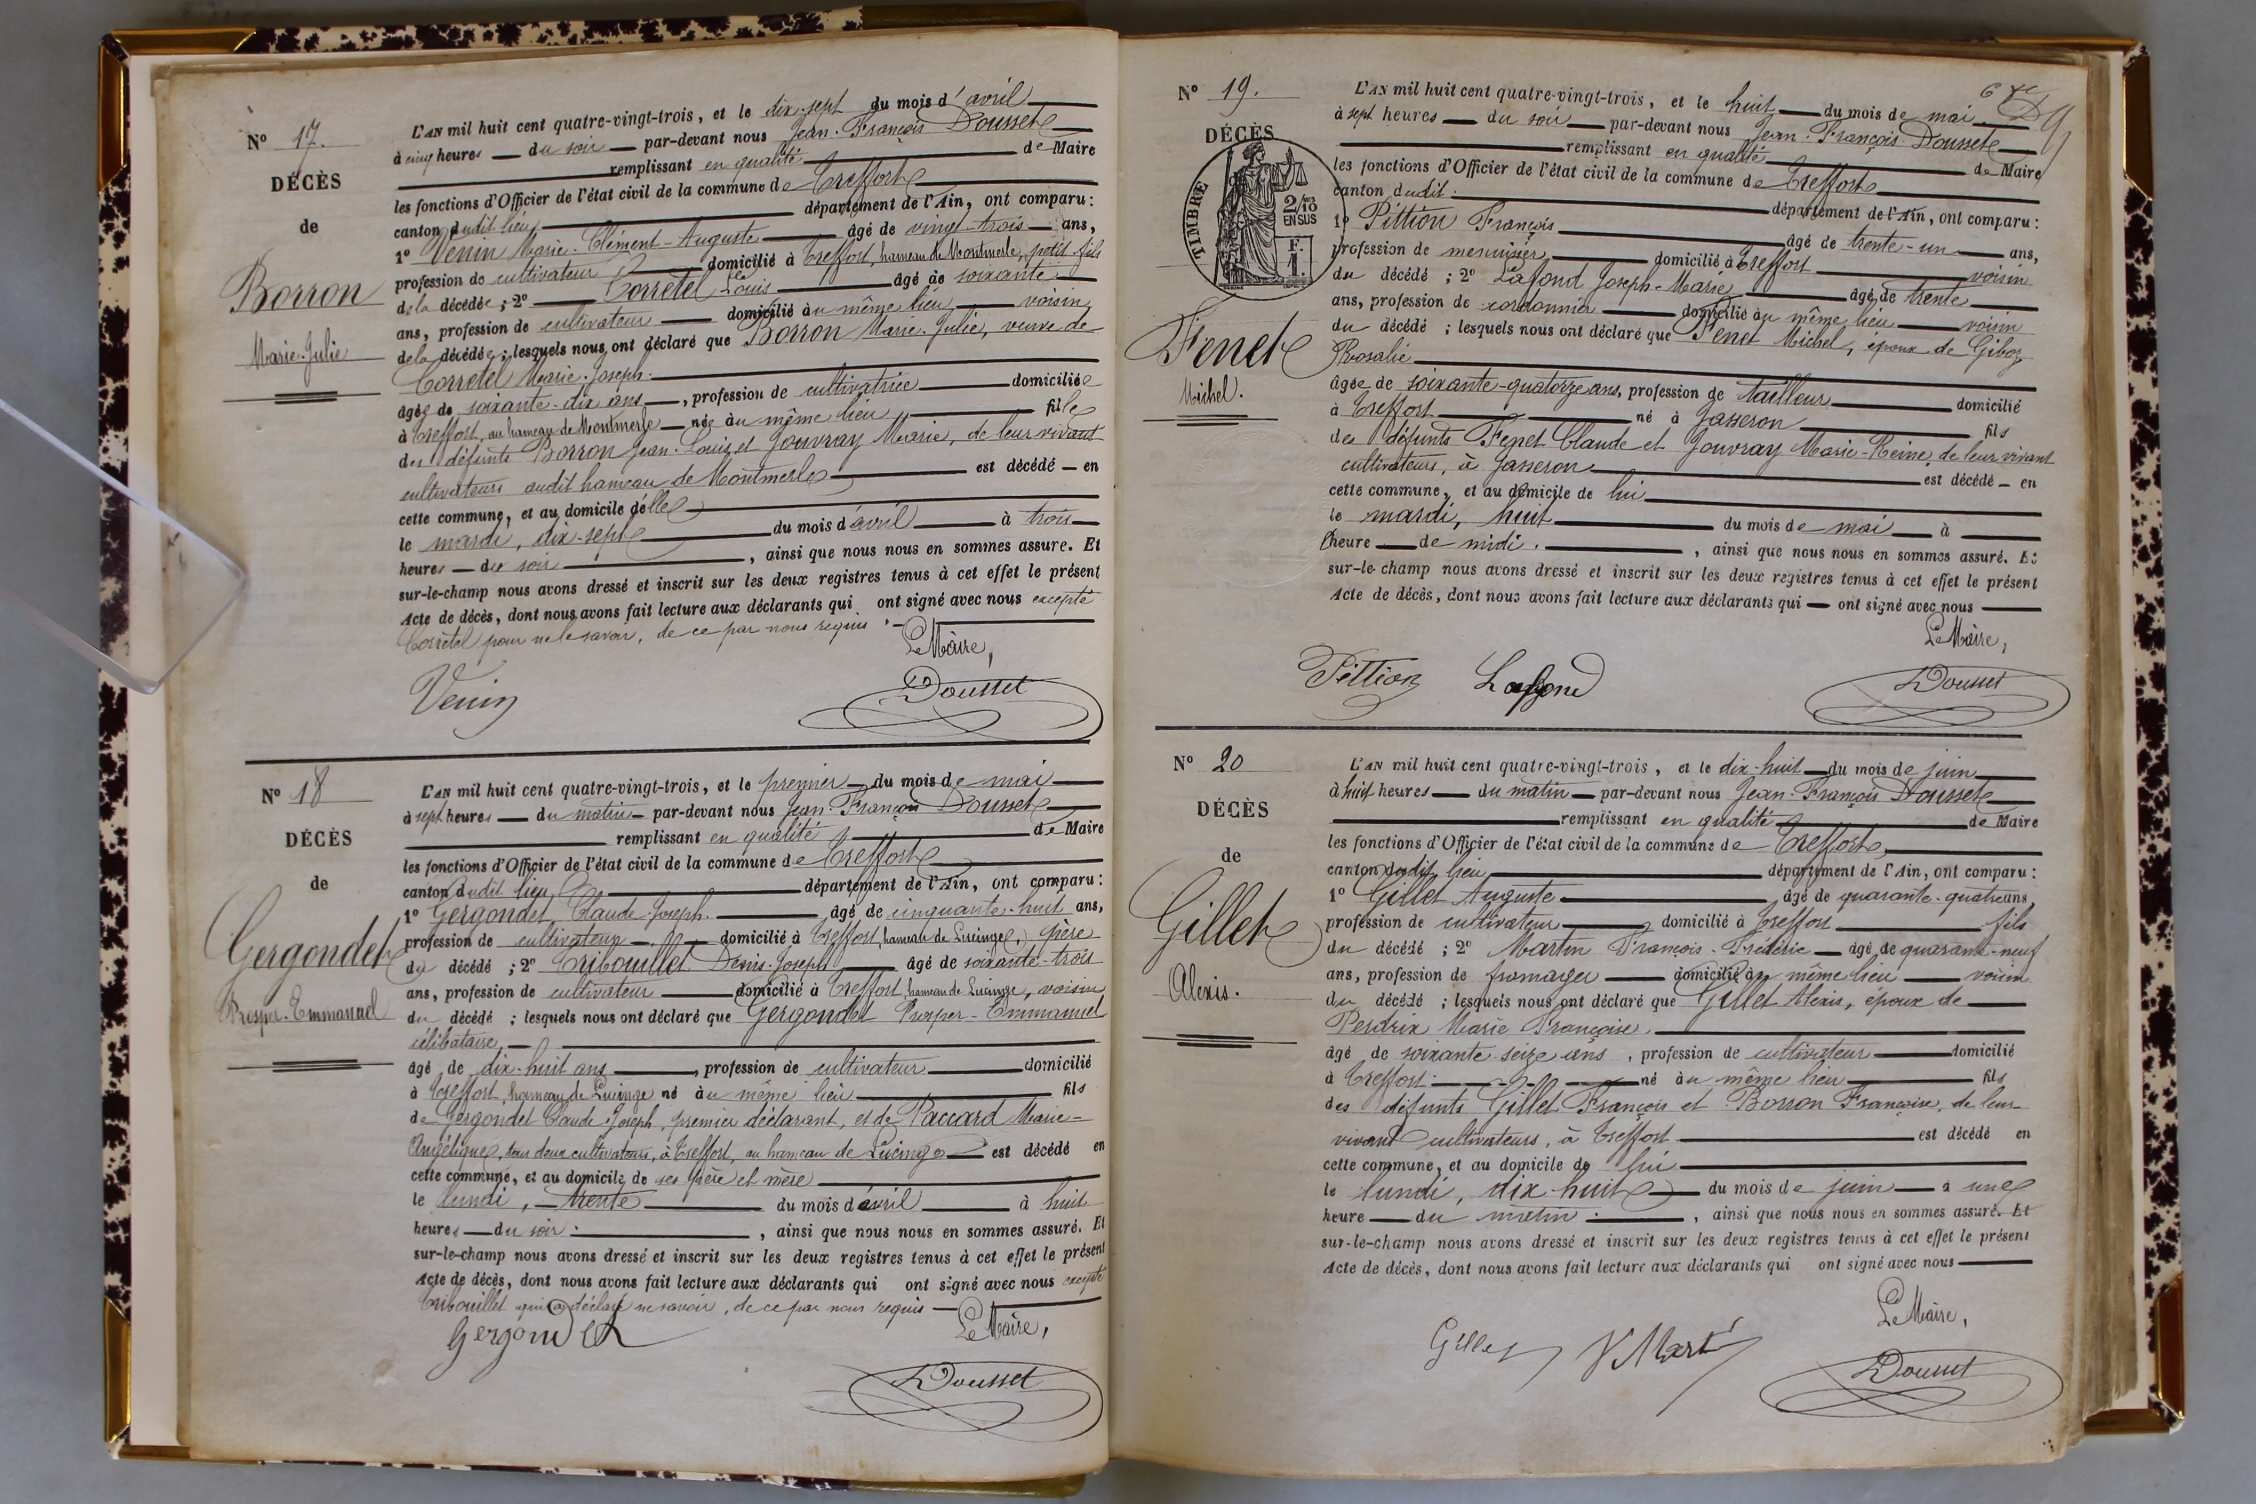 N° 17.
DÉCÈS
de
Borron
Marie-Julie
L'AN mil huit cent quatre-vingt-trois, et le dix-sept du mois d'avril
à cinq heures du soir par-devant nous Jean-François Dousset
remplissant en qualité de Maire
les fonctions d'Officier de l'état civil de la commune de Treffort
canton dudit lieu département de l'Ain, ont comparu :
1° Venin Marie-Clément-Auguste âgé de vingt-trois ans,
profession de cultivateur domicilié à Treffort, hameau de Montmerle, petit-fils
de la décédée ; 2° Corretel Louis âgé de soixante
ans, profession de cultivateur domicilié au même lieu voisin
de la décédée ; lesquels nous ont déclaré que Borron Marie-Julie, veuve de
Corretel Marie-Joseph.
âgée de soixante-dix ans, profession de cultivatrice domiciliée
à Treffort, au hameau de Montmerle née au même lieu fille
des défunts Borron Jean-Louis et Jouvray Marie, de leur vivant
cultivateurs audit hameau de Montmerle est décédé en
cette commune, et au domicile d'elle
le mardi, dix-sept du mois d'avril à trois
heures du soir, ainsi que nous nous en sommes assuré. Et
sur-le-champ nous avons dressé et inscrit sur les deux registres tenus à cet effet le présent
Acte de décès, dont nous avons fait lecture aux déclarants qui ont signé avec nous excepté
Corretel pour ne le savoir, de ce par nous requis.
Le Maire,
Venin
Dousset
N° 18
DÉCÈS
de
Gergondet
Prosper-Emmanuel
L'AN mil huit cent quatre-vingt-trois, et le premier du mois de mai
à sept heures du matin par-devant nous Jean-François Dousset
remplissant en qualité de Maire
les fonctions d'Officier de l'état civil de la commune de Treffort
canton dudit lieu département de l'Ain, ont comparu :
1° Gergondet Claude-Joseph. âgé de cinquante-huit ans,
profession de cultivateur domicilié à Treffort, hameau de Lucinge, père
du décédé ; 2° Tribouillet Denis-Joseph âgé de soixante-trois
ans, profession de cultivateur domicilié à Treffort, hameau de Lucinge, voisin
du décédé ; lesquels nous ont déclaré que Gergondet Prosper-Emmanuel
célibataire,
âgé de dix-huit ans, profession de cultivateur domicilié
à Treffort, hameau de Lucinge né au même lieu fils
de Gergondet Claude-Joseph, premier déclarant, et de Paccard Marie-
Angélique, tous deux cultivateurs, à Treffort, au hameau de Lucinge est décédé en
cette commune, et au domicile de ses père et mère
le lundi, trente du mois d'avril à huit
heures du soir., ainsi que nous nous en sommes assuré. Et
sur-le-champ nous avons dressé et inscrit sur les deux registres tenus à cet effet le présent
Acte de décès, dont nous avons fait lecture aux déclarants qui ont signé avec nous excepté
Tribouillet qui a déclaré ne savoir, de ce par nous requis
Le Maire,
Gergondet
Dousset
6
N° 19.
DÉCÈS
TIMBRE
2/10 EN SUS
F. 1.
Fenet
Michel.
L'AN mil huit cent quatre-vingt-trois, et le huit du mois de mai
à sept heures du soir par-devant nous Jean-François Dousset
remplissant en qualité de Maire
les fonctions d'Officier de l'état civil de la commune de Treffort
canton dudit. département de l'Ain, ont comparu :
1° Pittion François âgé de trente-un ans,
profession de menuisier domicilié à Treffort voisin
du décédé ; 2° Lafond Joseph-Marie âgé de trente
ans, profession de cordonnier domicilié au même lieu voisin
du décédé ; lesquels nous ont déclaré que Fenet Michel, époux de Giboz
Rosalie
âgée de soixante-quatorze ans, profession de tailleur domicilié
à Treffort né à Jasseron fils
des défunts Fenet Claude et Jouvray Marie-Reine, de leur vivant
cultivateurs, à Jasseron est décédé en
cette commune, et au domicile de lui
le mardi, huit du mois de mai à
heure de midi., ainsi que nous nous en sommes assuré. Et
sur-le-champ nous avons dressé et inscrit sur les deux registres tenus à cet effet le présent
Acte de décès, dont nous avons fait lecture aux déclarants qui ont signé avec nous
Le Maire,
Pittion Lafond
Dousset
N° 20
DÉCÈS
de
Gillet
Alexis.
L'AN mil huit cent quatre-vingt-trois, et le dix-huit du mois de juin
à huit heures du matin par-devant nous Jean-François Dousset
remplissant en qualité de Maire
les fonctions d'Officier de l'état civil de la commune de Treffort
canton dudit lieu département de l'Ain, ont comparu :
1° Gillet Auguste âgé de quarante-quatre ans
profession de cultivateur domicilié à Treffort fils
du décédé ; 2° Martin François-Fréderic âgé de quarante-neuf
ans, profession de fromager domicilié au même lieu voisin
du décédé ; lesquels nous ont déclaré que Gillet Alexis, époux de
Perdrix Marie Françoise.
âgé de soixante-seize ans, profession de cultivateur domicilié
à Treffort né au même lieu fils
des défunts Gillet François et Borron Françoise, de leur
vivant cultivateurs, à Treffort est décédé en
cette commune, et au domicile de lui
le lundi, dix-huit du mois de juin à une
heure du matin., ainsi que nous nous en sommes assuré. Et
sur-le-champ nous avons dressé et inscrit sur les deux registres tenus à cet effet le présent
Acte de décès, dont nous avons fait lecture aux déclarants qui ont signé avec nous
Le Maire,
Gillet Martin
Dousset